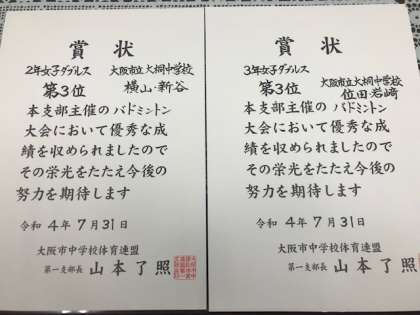 賞状
2年女子ダブルス 大阪市立大桐中学校
第3位 横山・新谷
本支部主催のバドミントン
大会において優秀な成
績を収められましたので
その栄光をたたえ今後の
努力を期待します
令和 4年 7月31日
大阪市中学校体育連盟
第一支部長 山本了照
賞状
3年女子ダブルス 大阪市立大桐中学校
第3位 位田・岩崎
本支部主催のバドミントン
大会において優秀な成
績を収められましたので
その栄光をたたえ今後の
努力を期待します
令和 4年 7月31日
大阪市中学校体育連盟
第一支部長 山本了照